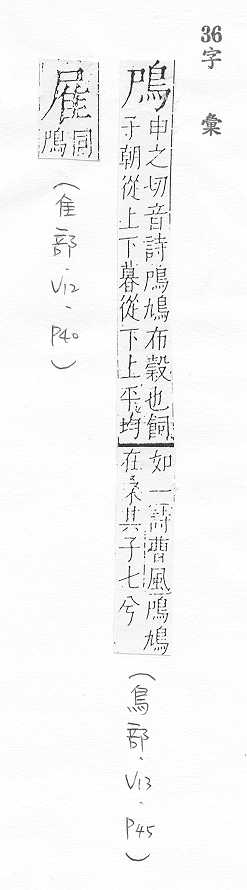 36字 彙
鳲
申之切音詩鳲鳩布穀也飼
子朝從上下暮從下上平均
如一詩曹風鳲鳩
在桑其子七兮
(鳥部、V13、P45)
同
鳲
(隹部、V12、P40)